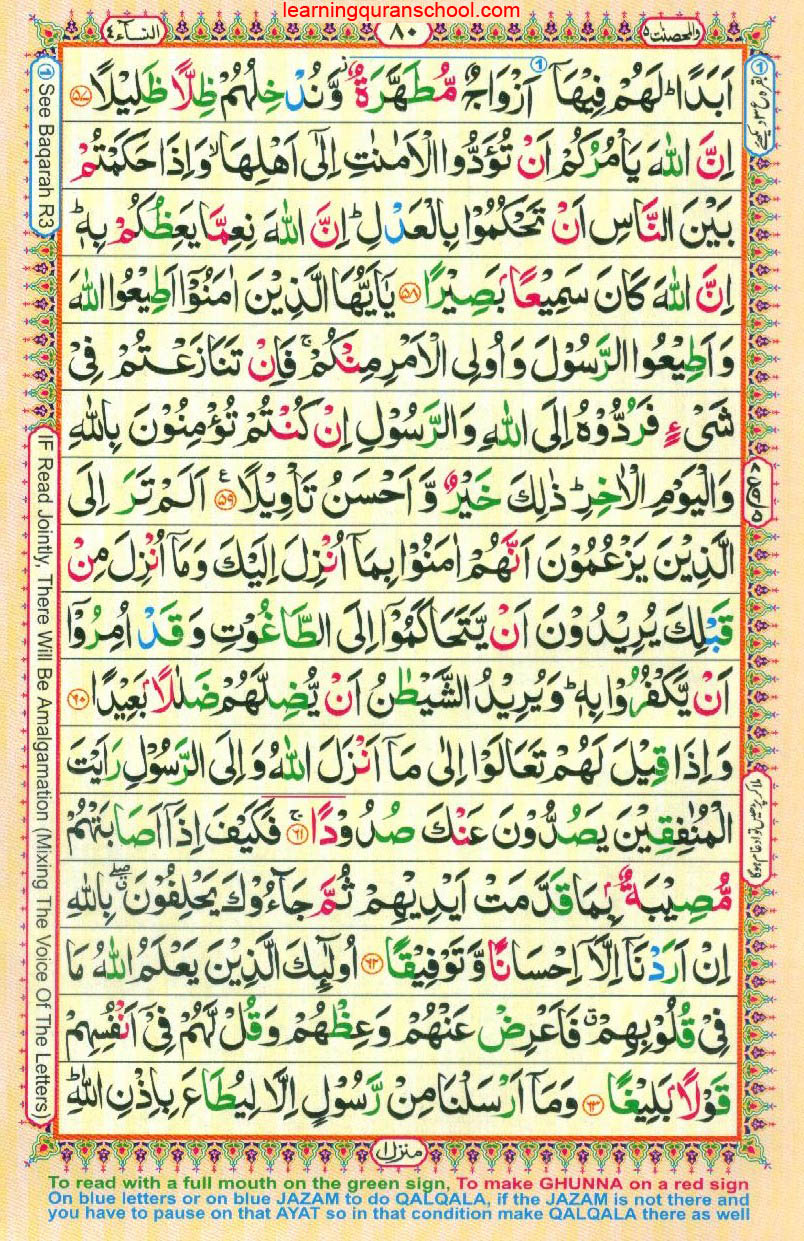 learningquranschool.com
والمحصنت ۵
۸۰
النسآء ۴
اَبَدًا ؕ لَهُمْ فِیْهَاۤ اَزْوَاجٌ مُّطَهَّرَةٌ ٘ وَّ نُدْخِلُهُمْ ظِلًّا ظَلِیْلًا ﴿۵۷﴾
اِنَّ اللّٰهَ یَاْمُرُكُمْ اَنْ تُؤَدُّوا الْاَمٰنٰتِ اِلٰۤی اَهْلِهَا ۙ وَ اِذَا حَكَمْتُمْ
بَیْنَ النَّاسِ اَنْ تَحْكُمُوْا بِالْعَدْلِ ؕ اِنَّ اللّٰهَ نِعِمَّا یَعِظُكُمْ بِهٖ ؕ
اِنَّ اللّٰهَ كَانَ سَمِیْعًۢا بَصِیْرًا ﴿۵۸﴾ یٰۤاَیُّهَا الَّذِیْنَ اٰمَنُوْۤا اَطِیْعُوا اللّٰهَ
وَ اَطِیْعُوا الرَّسُوْلَ وَ اُولِی الْاَمْرِ مِنْكُمْ ۚ فَاِنْ تَنَازَعْتُمْ فِیْ
شَیْءٍ فَرُدُّوْهُ اِلَی اللّٰهِ وَ الرَّسُوْلِ اِنْ كُنْتُمْ تُؤْمِنُوْنَ بِاللّٰهِ
وَ الْیَوْمِ الْاٰخِرِ ؕ ذٰلِكَ خَیْرٌ وَّ اَحْسَنُ تَاْوِیْلًا ﴿۵۹﴾ ع اَلَمْ تَرَ اِلَی
الَّذِیْنَ یَزْعُمُوْنَ اَنَّهُمْ اٰمَنُوْا بِمَاۤ اُنْزِلَ اِلَیْكَ وَ مَاۤ اُنْزِلَ مِنْ
قَبْلِكَ یُرِیْدُوْنَ اَنْ یَّتَحَاكَمُوْۤا اِلَی الطَّاغُوْتِ وَ قَدْ اُمِرُوْۤا
اَنْ یَّكْفُرُوْا بِهٖ ؕ وَ یُرِیْدُ الشَّیْطٰنُ اَنْ یُّضِلَّهُمْ ضَلٰلًۢا بَعِیْدًا ﴿۶۰﴾
وَ اِذَا قِیْلَ لَهُمْ تَعَالَوْا اِلٰی مَاۤ اَنْزَلَ اللّٰهُ وَ اِلَی الرَّسُوْلِ رَاَیْتَ
الْمُنٰفِقِیْنَ یَصُدُّوْنَ عَنْكَ صُدُوْدًا ﴿۶۱﴾ ۚ فَكَیْفَ اِذَاۤ اَصَابَتْهُمْ
مُّصِیْبَةٌۢ بِمَا قَدَّمَتْ اَیْدِیْهِمْ ثُمَّ جَآءُوْكَ یَحْلِفُوْنَ ۖۗ بِاللّٰهِ
اِنْ اَرَدْنَاۤ اِلَّاۤ اِحْسَانًا وَّ تَوْفِیْقًا ﴿۶۲﴾ اُولٰٓئِكَ الَّذِیْنَ یَعْلَمُ اللّٰهُ مَا
فِیْ قُلُوْبِهِمْ ۗ فَاَعْرِضْ عَنْهُمْ وَ عِظْهُمْ وَ قُلْ لَّهُمْ فِیْۤ اَنْفُسِهِمْ
قَوْلًۢا بَلِیْغًا ﴿۶۳﴾ وَ مَاۤ اَرْسَلْنَا مِنْ رَّسُوْلٍ اِلَّا لِیُطَاعَ بِاِذْنِ اللّٰهِ ؕ
1 See Baqarah R3
IF Read Jointly, There Will Be Amalgamation (Mixing The Voice Of The Letters)
منزل ۱
To read with a full mouth on the green sign, To make GHUNNA on a red sign
On blue letters or on blue JAZAM to do QALQALA, if the JAZAM is not there and
you have to pause on that AYAT so in that condition make QALQALA there as well